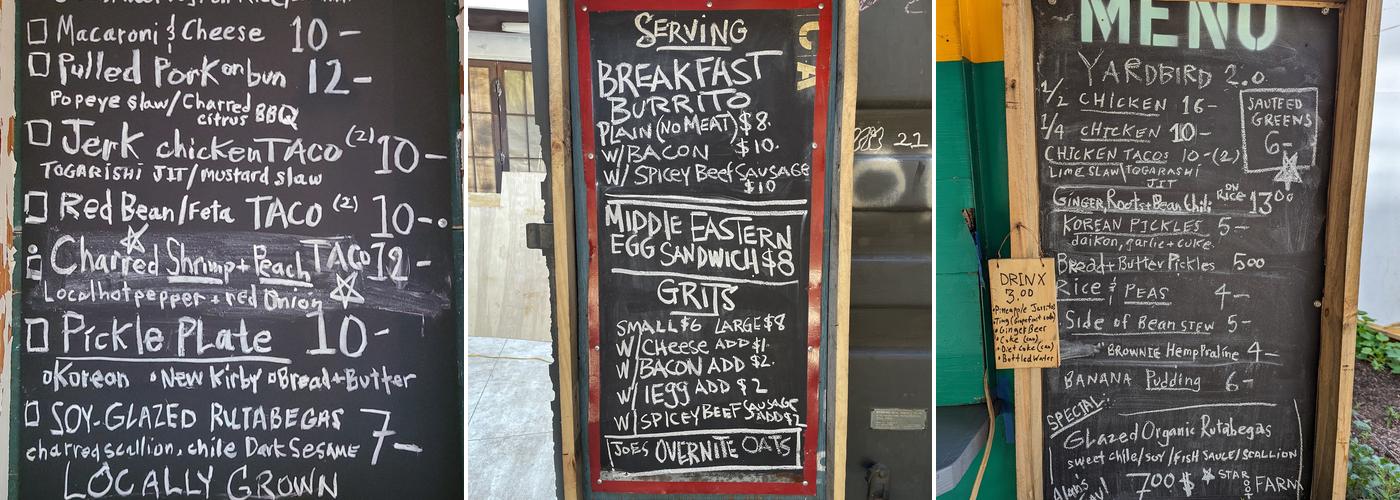 Macaroni & Cheese 10-
Pulled Pork on bun 12-
Popeye slaw/Charred citrus BBQ
Jerk chicken TACO (2) 10-
TOGARISHI JIT/mustard slaw
Red Bean/Feta TACO (2) 10-
Charred Shrimp + Peach TACO 12-
Local hot pepper + red Onion
Pickle PLate 10-
Korean New Kirby Bread+Butter
SOY-GLAZED RUTABEGAS 7-
charred scallion, chile Dark Sesame
LOCALLY GROWN
SERVING
BREAKFAST
BURRITO
PLAIN (NO MEAT) $8.
W/BACON $10.
W/SPICEY BEEF SAUSAGE
$10
MIDDLE EASTERN
EGG SANDWICH $8
GRITS
SMALL $6 LARGE $8
W/CHEESE ADD $1.
W/BACON ADD $2.
W/1EGG ADD $2
W/SPICEY BEEF SAUSAGE ADD $2
JOES OVERNITE OATS
CA
21
MENU
YARDBIRD 2.0
1/2 CHICKEN 16-
1/4 CHICKEN 10-
SAUTEED
GREENS
6-
CHICKEN TACOS 10-(2)
LIME SLAW\TOGARASHI
JIT
GINGER, Roots+Bean Chili ON RICE 13.00
KOREAN PICKLES 5-
daikon, garlic + cuke.
Bread+Butter Pickles 500
Rice & PEAS 4-
Side of Bean STEW 5-
BROWNIE Hemp Praline 4-
BANANA Pudding 6-
SPECIAL:
Glazed Organic Rutabegas
sweet chile/SOY/FISH SAUCE/SCALLION
7.00 STAR ROOT FARM
DRINX
3.00
Pineapple Jarritos
Ting (Grapefruit soda)
Ginger Beer
Coke (can)
Diet Coke (can)
Bottled Water